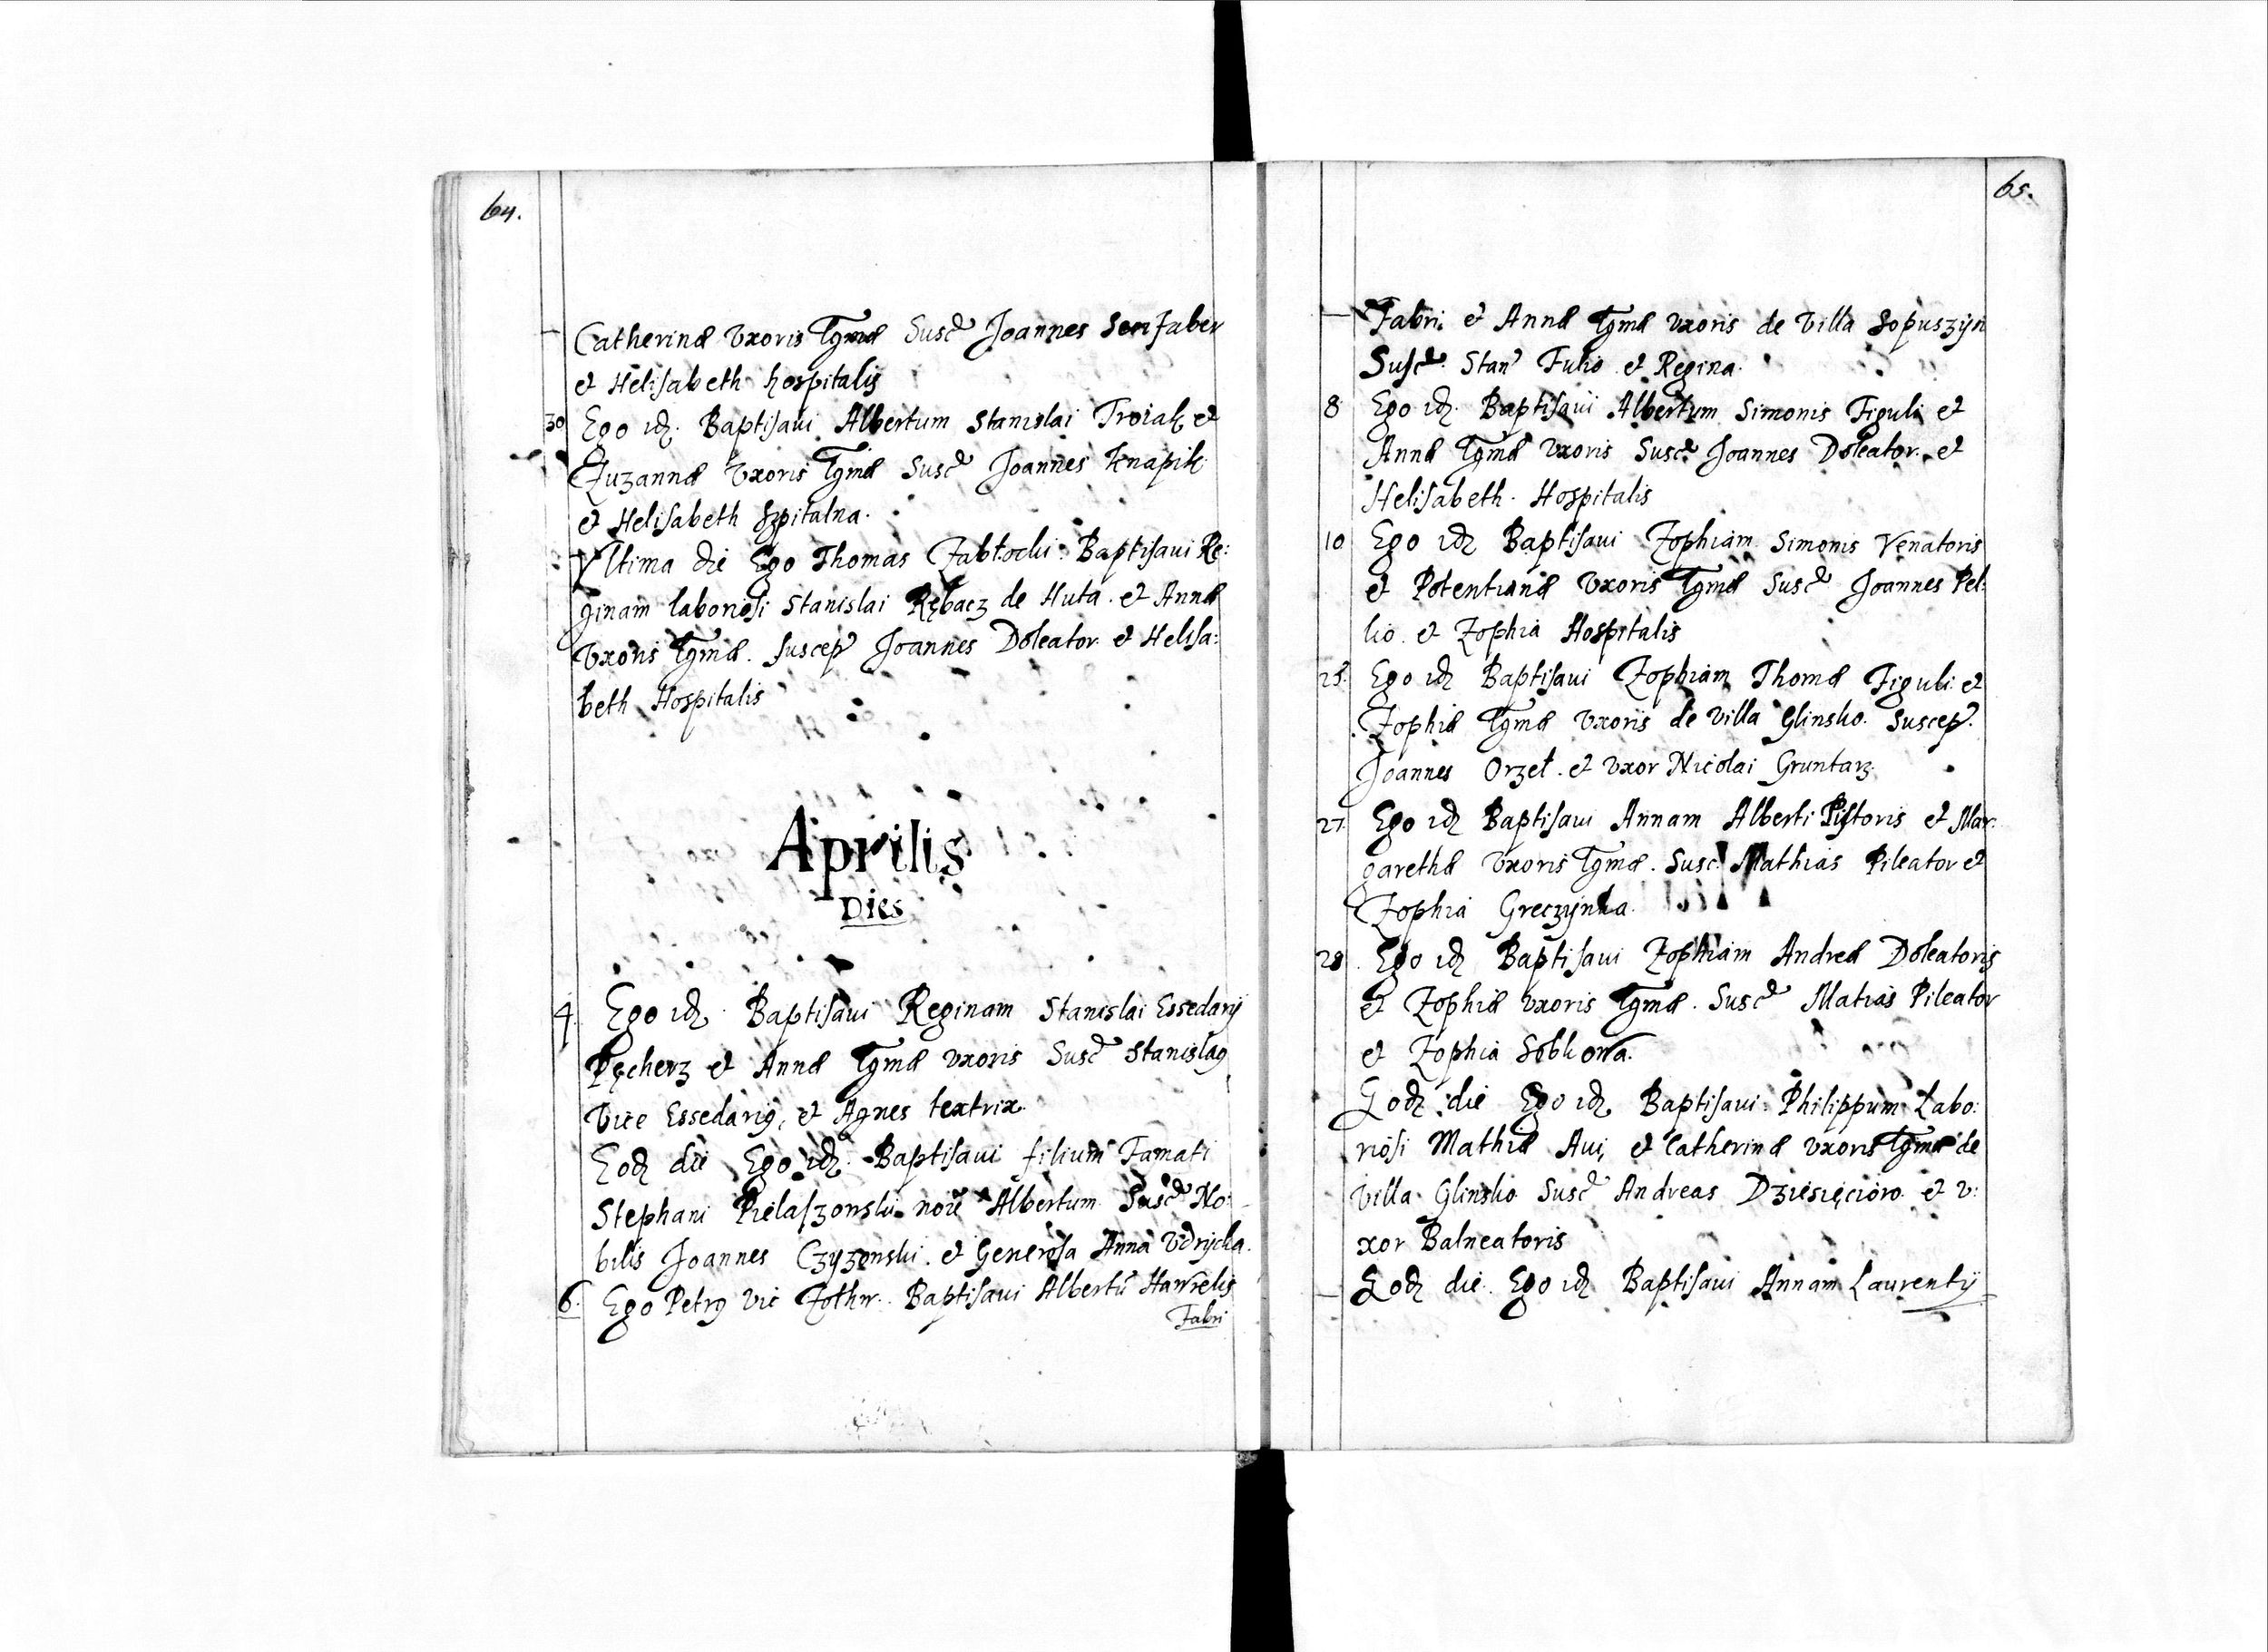 64.
Catherinæ Vxoris lgmæ Suscͩ Joannes Serifaber
et Helisabeth hospitalis
30 Ego idȝ. Baptisaui Albertum Stanislai Troiak et
Zuzannæ Vxoris lgmæ Suscͩ Joannes Knapik
et Helisabeth Szpitalna.
Vltima die Ego Thomas Zabłocki Baptisaui Re:
ginam laboriosi Stanislai Rębacz de Huta. et Annæ
Vxoris lgmæ. Suscep Joannes Doleator et Helisa:
beth Hospitalis
Aprilis
Dies
4. Ego idȝ. Baptisaui Reginam Stanislai Essedarij
Pęcherz et Annæ lgmæ vxoris Suscͩ Stanislaꝰ
Vice Essedariꝰ, et Agnes textrix.
Eodȝ die Ego idȝ. Baptisaui filium Famati
Stephani Pielaszowski noiē Albertum Suscͩ No:
bilis Joannes Czyzowski. et Generosa Anna Vdrycka.
6. Ego Petrꝰ Vic Zołkw. Baptisaui Albertū Hawrelis
Fabri
65.
Fabri et Annæ lgmæ vxoris de Villa Sopuszyn
Suscͩ Stan Fulio et Regina.
8 Ego idȝ. Baptisaui Albertum Simonis Figuli et
Annæ lgmæ Vxoris Suscͩ Joannes Doleator. et
Helisabeth. Hospitalis
10 Ego idȝ Baptisaui Zophiam Simonis Venatoris
et Potentianæ Vxoris lgmæ Suscͩ Joannes Pel:
lio. et Zophia Hospitalis
25. Ego idȝ Baptisaui Zophiam Thomæ Figuli et
Zophiæ lgmæ Vxoris de Villa Glinsko. Suscep.
Joannes Orzeł. et Vxor Nicolai Gruntarz.
27. Ego idȝ Baptisaui Annam Alberti Pistoris et Mar:
garethæ Vxoris lgmæ. Susc Mathias Pileator et
Zophia Greczynka.
28. Ego idȝ Baptisaui Zophiam Andreæ Doleatoris
et Zophiæ vxoris lgmæ. Suscͩ Matias Pileator
et Zophia Sobkowa.
Eodȝ die Ego idȝ Baptisaui Philippum Labo:
riosi Mathiæ Aui, et Catherinæ vxoris lgmæ de
Villa Glinsko Suscͩ Andreas Dziesięcioro et v:
xor Balneatoris
Eodȝ die. Ego idȝ Baptisaui Annam Laurentij